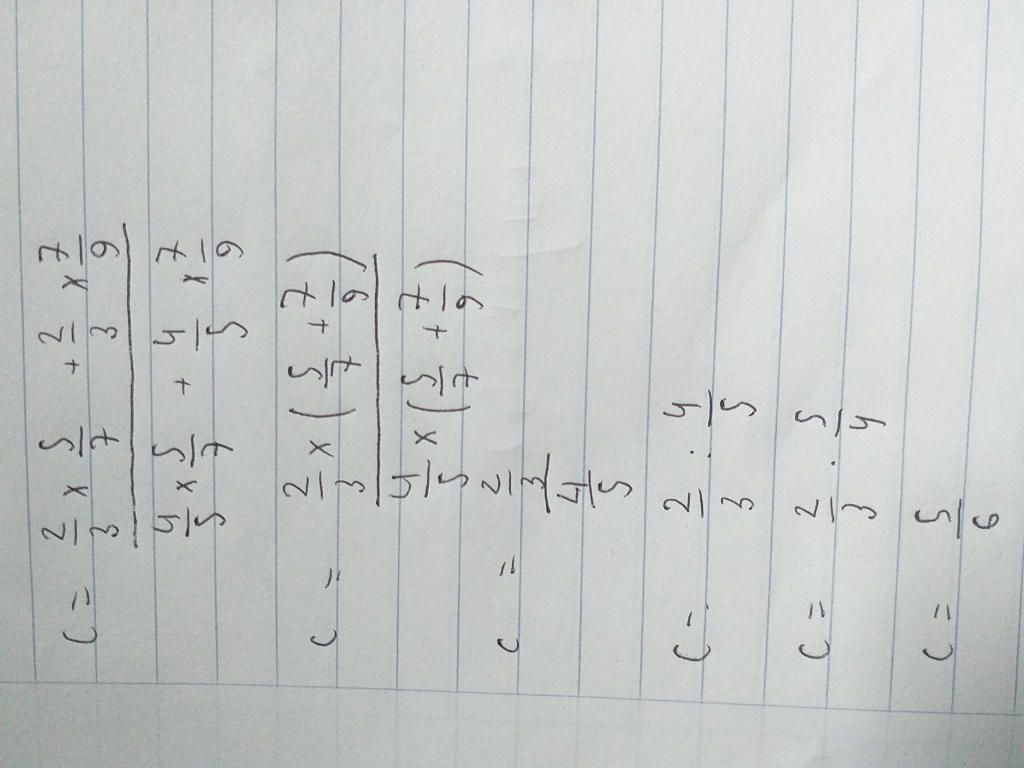 C = 2/3 x 5/7 + 2/3 x 7/9
4/5 x 5/7 + 4/5 x 7/9
C = 2/3 x (5/7 + 7/9)
4/5 x (5/7 + 7/9)
C = 2/3
4/5
C = 2/3 : 4/5
C = 2/3 . 5/4
C = 5/6